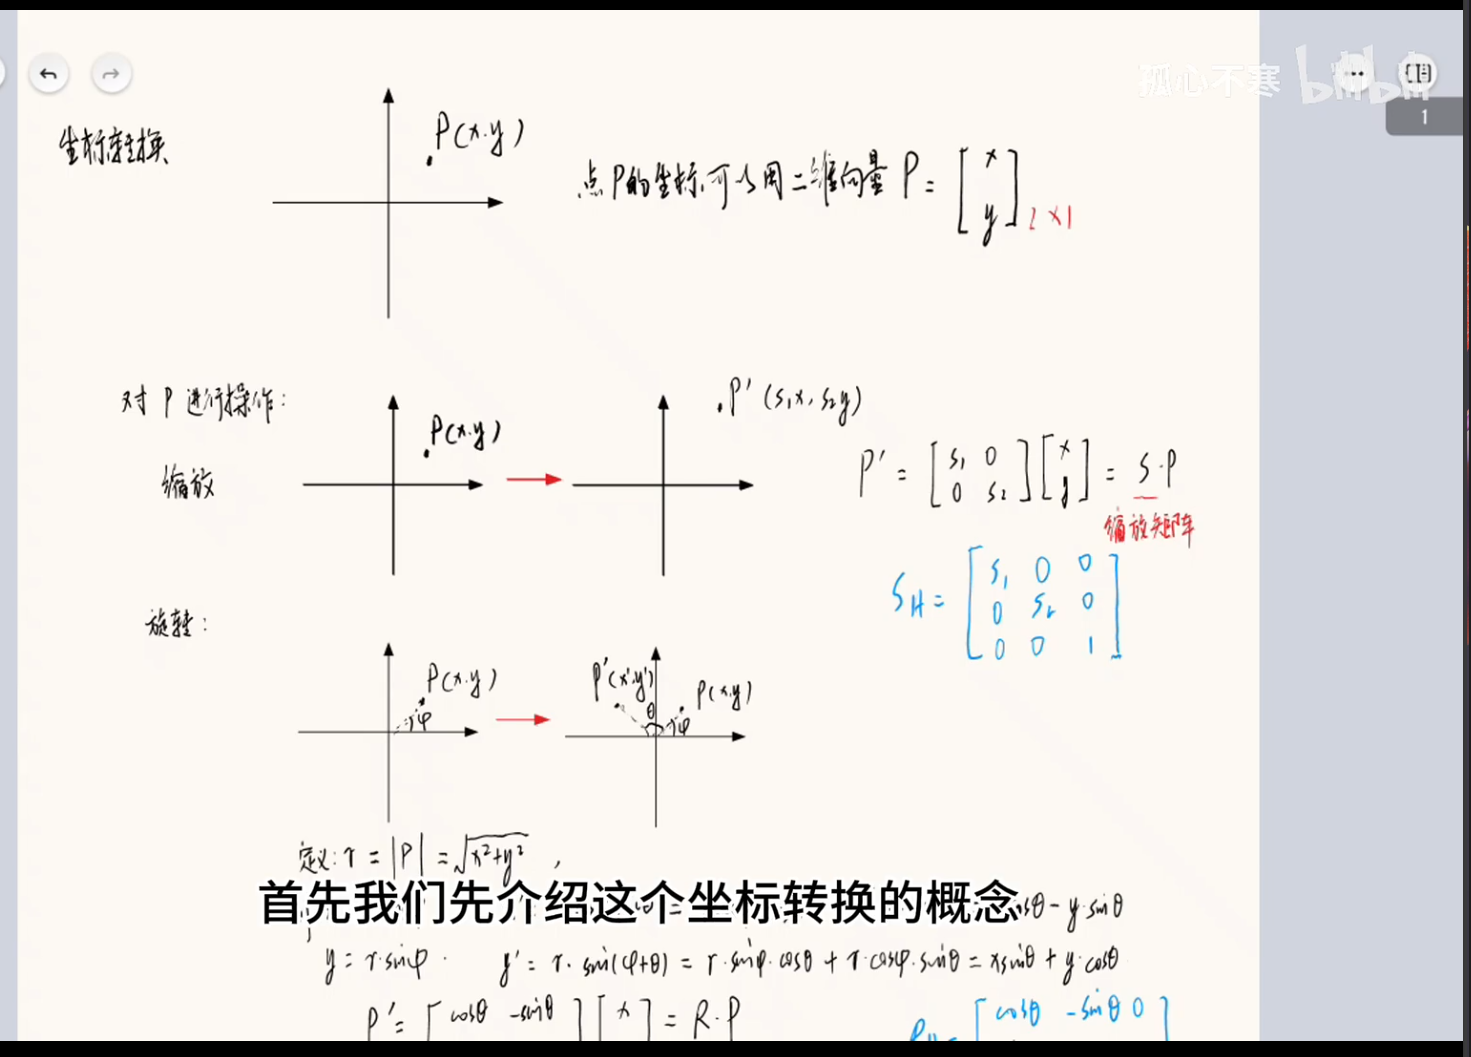 孤心不寒 bilibili
1
坐标转换
P(x.y)
点P的坐标,可以用二维向量 P = [x y] 2×1
对 P 进行操作:
缩放
P(x.y)
P'(s₁x, s₂y)
P' = [s₁ 0 0 s₂][x y] = S·P
缩放矩阵
S_H = [s₁ 0 0 0 s₂ 0 0 0 1]
旋转:
P(x.y)
φ
P'(x'.y')
θ
P(x.y)
φ
定义: r = |P| = √x²+y² ,
首先我们先介绍这个坐标转换的概念
osθ - y·sinθ
y = r·sinφ. y' = r·sin(φ+θ) = r·sinφ·cosθ + r·cosφ·sinθ = xsinθ + y·cosθ
P' = [cosθ -sinθ][x] = R·P
[cosθ -sinθ 0]